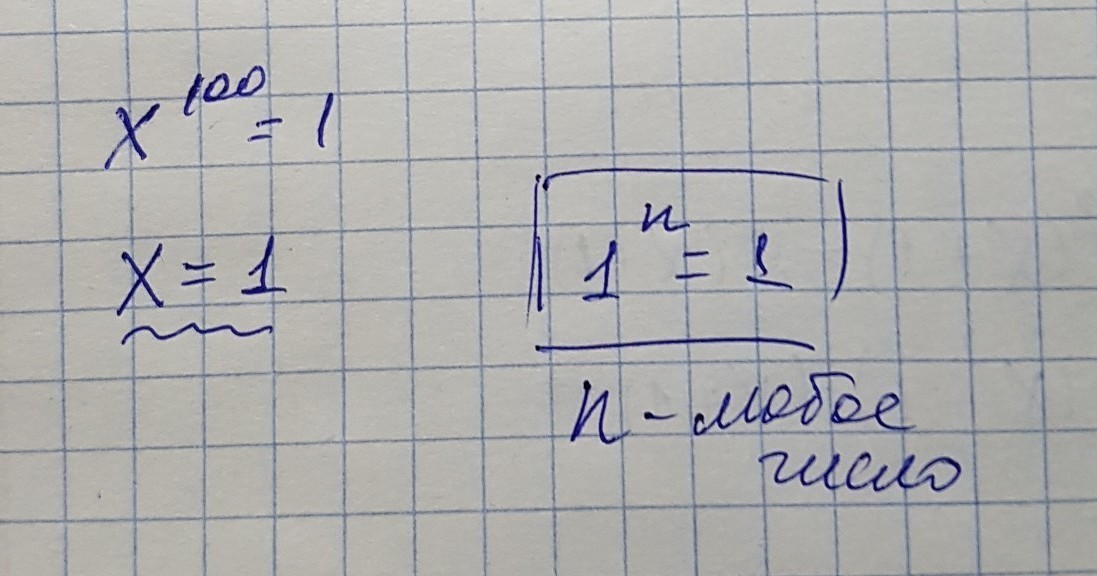 x¹⁰⁰ = 1
x = 1
1ⁿ = 1
n - любое
число